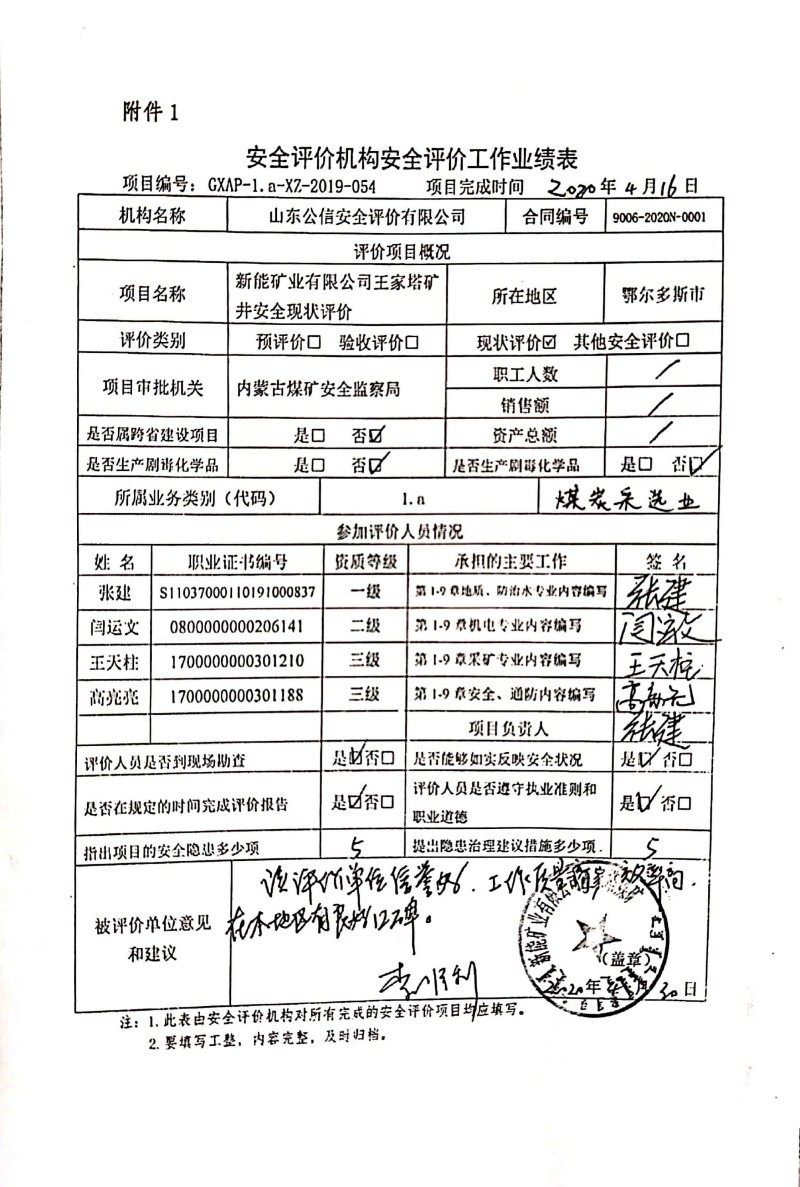 附件1
安全评价机构安全评价工作业绩表
项目编号：GXAP-1.a-XZ-2019-054 项目完成时间 2020年4月16日
机构名称 山东公信安全评价有限公司 合同编号 9006-2020N-0001
评价项目概况
项目名称 新能矿业有限公司王家塔矿井安全现状评价 所在地区 鄂尔多斯市
评价类别 预评价□ 验收评价□ 现状评价☑ 其他安全评价□
项目审批机关 内蒙古煤矿安全监察局 职工人数 /
销售额 /
是否属跨省建设项目 是□ 否☑ 资产总额 /
是否生产剧毒化学品 是□ 否☑ 是否生产剧毒化学品 是□ 否☑
所属业务类别（代码） 1.a 煤炭采选业
参加评价人员情况
姓名 职业证书编号 资质等级 承担的主要工作 签名
张建 S11037000110191000837 一级 第1-9章地质、防治水专业内容编写 张建
闫运文 0800000000206141 二级 第1-9章机电专业内容编写
王天柱 1700000000301210 三级 第1-9章采矿专业内容编写 王天柱
高亮亮 1700000000301188 三级 第1-9章安全、通防内容编写 高亮亮
项目负责人 张建
评价人员是否到现场勘查 是☑否□ 是否能够如实反映安全状况 是☑ 否□
是否在规定的时间完成评价报告 是☑否□ 评价人员是否遵守执业准则和职业道德 是☑ 否□
指出项目的安全隐患多少项 5 提出隐患治理建议措施多少项 5
被评价单位意见和建议
该评价单位信誉好．工作质量高 效率高．
在本地区有良好口碑。
李顺利
新能矿业有限公司
（盖章）
2020年 30日
注：1.此表由安全评价机构对所有完成的安全评价项目均应填写。
2.要填写工整，内容完整，及时归档。